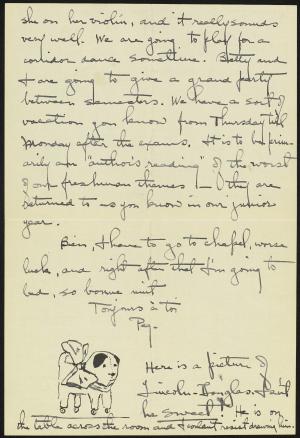 she on her violin, and it really sounds
very well. We are going to play for a
corridor dance sometime. Betty and
I are going to give a grand party
between semesters. We have a sort of
vacation you know from Thursday till
Monday after the exams. It is to be prim-
arily an "author's reading" of the worst
of our freshman themes! — they are
returned to us you know in our junior
year.
Bien, I have to go to chapel, worse
luck, and right after that I'm going to
bed, so bonne nuit
Toujours à toi
Peg.
Here is a picture of
Lincoln-Douglas. Isn't
he sweet? He is on
the table across the room and I cannot resist drawing him.